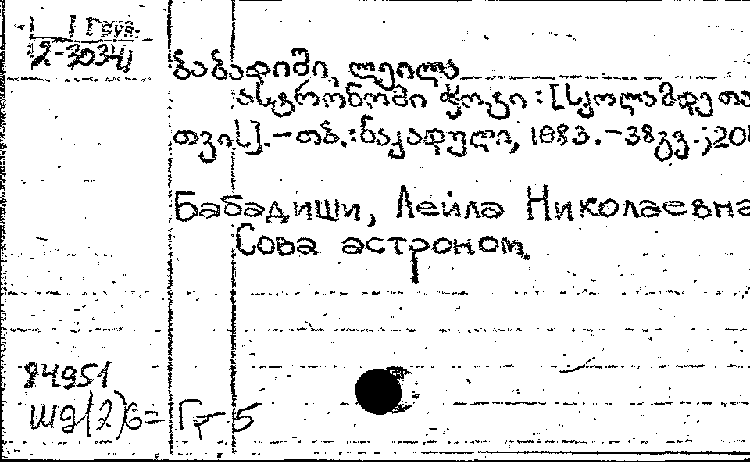 1 Груз.
2-30341
ბაბადიში, ლეილა
ასტრონომი ჭოტი : [სკოლამდე თა
თვის].–თბ.:ნაკადული, 1983.–38გვ.;20
Бабадиши, Лейла Николаевна
Сова астроном.
84951
Шд(2)6=Гр 5